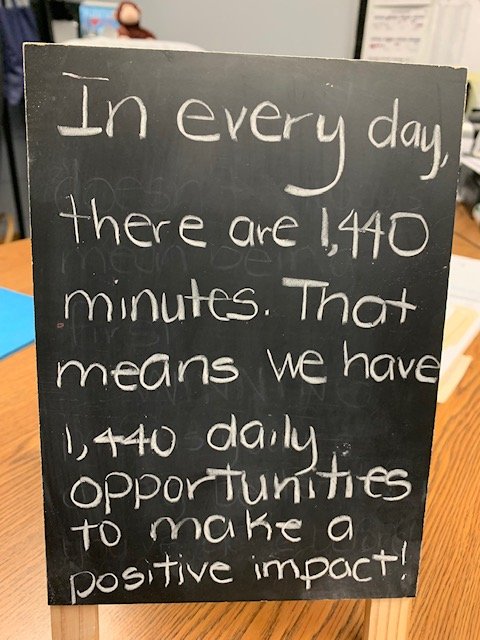 In every day,
there are 1,440
minutes. That
means we have
1,440 daily
opportunities
to make a
positive impact!